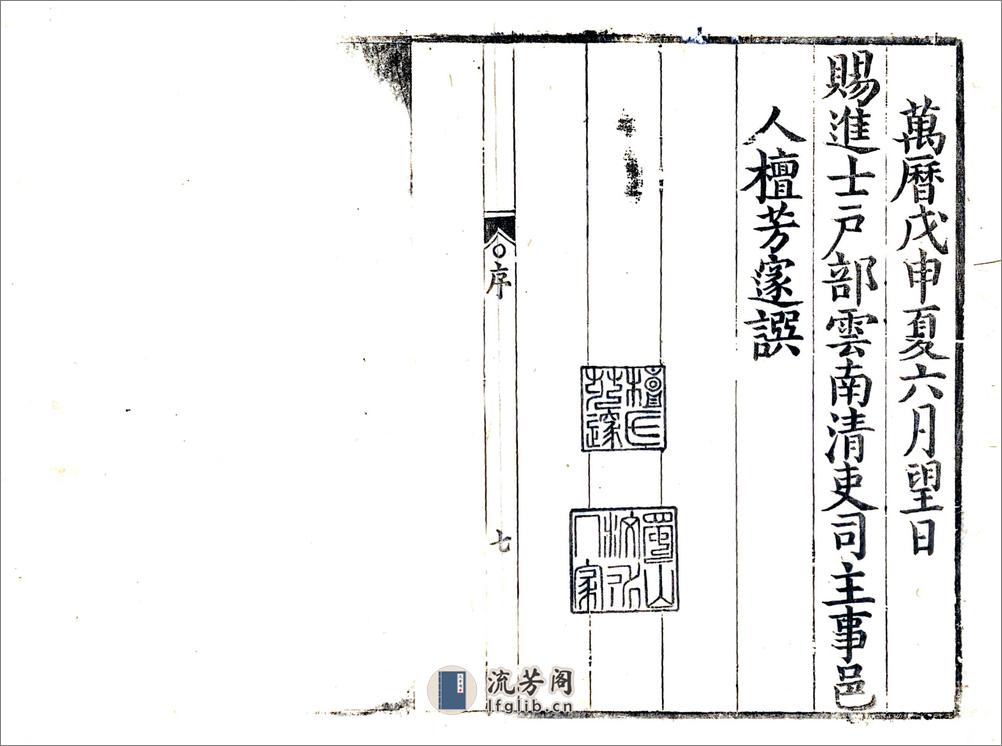 萬曆戊申夏六月望日
賜進士户部雲南清吏司主事邑
人檀芳邃譔
檀氏芳邃
蜀山
人家
序
七
流芳阁
lfglib.cn